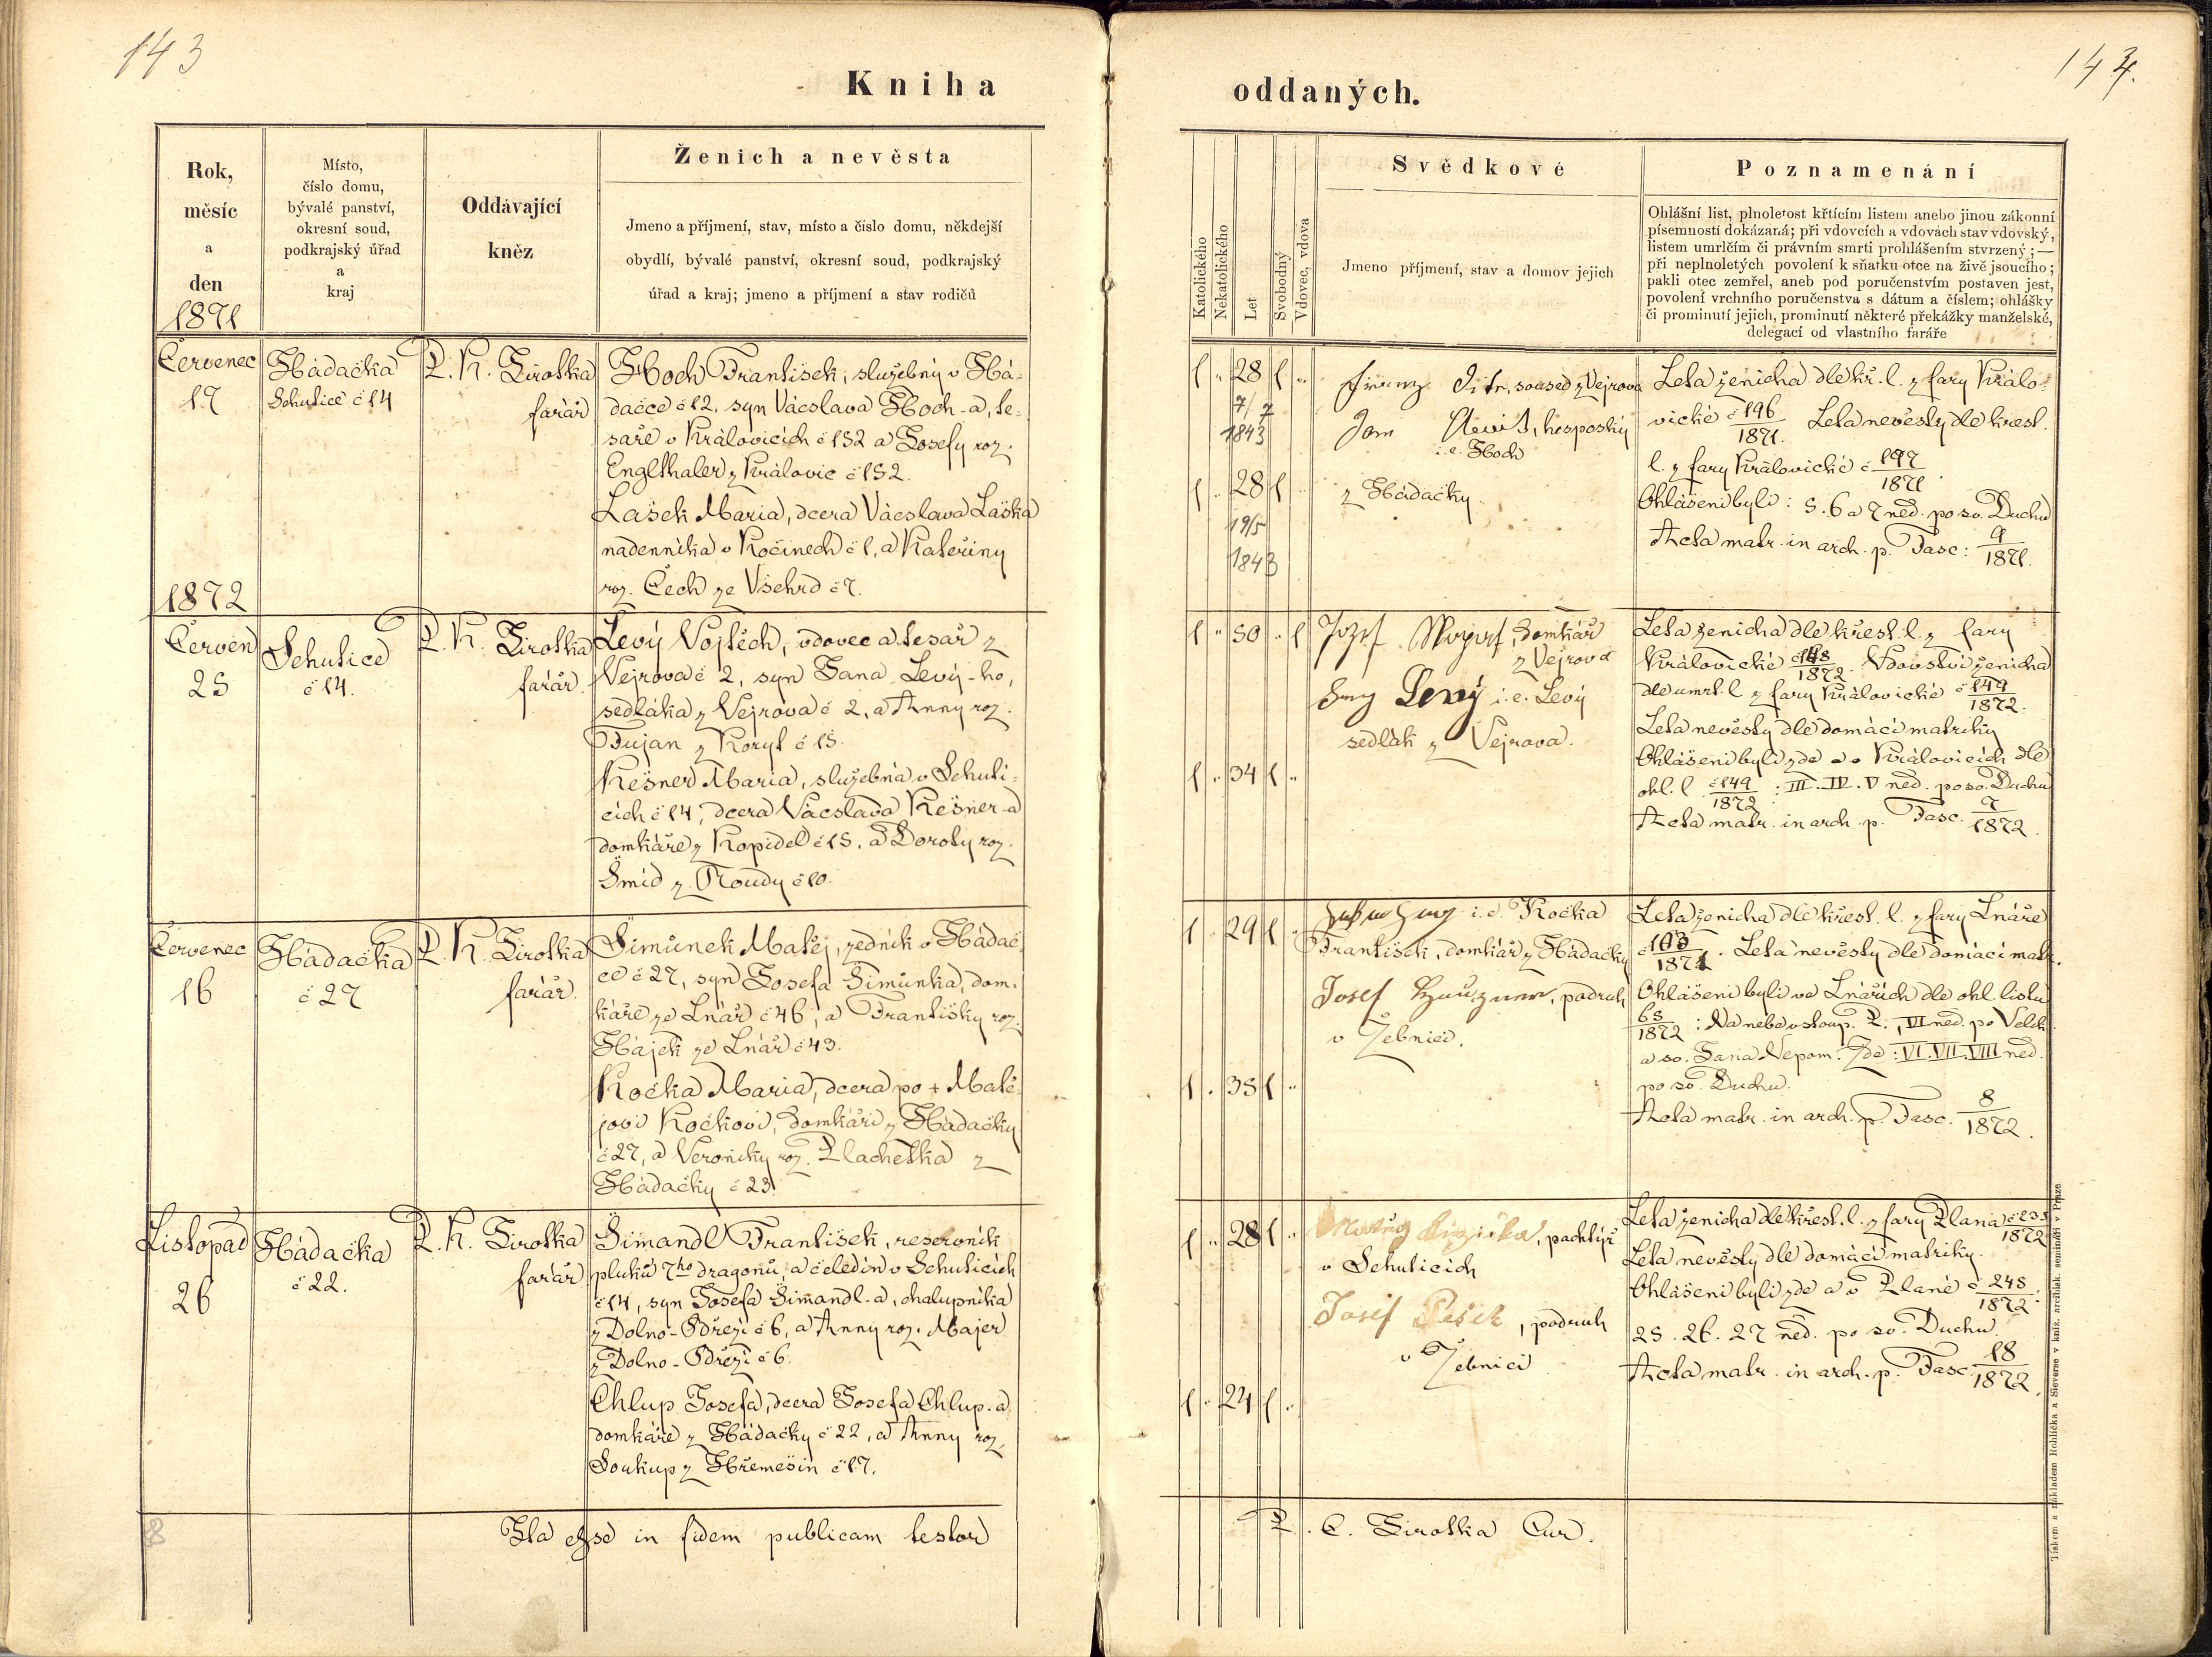 143
144.
Kniha
oddaných.
Rok,
měsíc
a
den
1871
Místo,
číslo domu,
bývalé panství,
okresní soud,
podkrajský úřad
a
kraj
Oddávající
kněz
Ženich a nevěsta
Jmeno a příjmení, stav, místo a číslo domu, někdejší
obydlí, bývalé panství, okresní soud, podkrajský
úřad a kraj; jmeno a příjmení a stav rodičů
Katolického
Nekatolického
Let
Svobodný
Vdovec, vdova
Svědkové
Jmeno příjmení, stav a domov jejich
Poznamenání
Ohlášní list, plnoletost křtícím listem anebo jinou zákonní
písemností dokázaná; při vdovcích a vdovách stav vdovský,
listem umrlčím či právním smrti prohlášením stvrzený; —
při neplnoletých povolení k sňatku otce na živě jsoucího;
pakli otec zemřel, aneb pod poručenstvím postaven jest,
povolení vrchního poručenstva s dátum a číslem; ohlášky
či prominutí jejich, prominutí některé překážky manželské,
delegací od vlastního faráře
Červenec
17
Hádačka
Sehutice č 14
P. K. Sirotka
farář
Hoch František, služebný v Há-
dačce č 12, syn Vácslava Hoch-a, te-
saře v Královicích č 152 a Josefy roz.
Englthaler z Královic č 152.
Lašek Maria, dcera Vácslava Laška
nadenníka v Kočinech č 1, a Kateřiny
roz. Čech ze Všehrd č 7.
1 " 28 1 "
7/7
1843
1 " 28 1 "
19/5
1843
soused z Vejrova
Jan
i. e. Hoch
z Hádačky.
Leta ženicha dle kř. l. z fary Králo-
vické č 196/1871. Leta nevěsty dle křest.
l. z fary Královické č 197/1871
Ohlášeni byli: 5. 6 a 7 ned. po sv. Duchu
Acta matr. in arch. p. Fasc: 9/1871.
1872
Červen
25
Sehutice
č 14.
P. K. Sirotka
farář.
Levý Vojtěch, vdovec a tesař z
Vejrova č 2, syn Jana Levý-ho,
sedláka z Vejrova č 2, a Anny roz.
Fujan z Koryt č 15.
Kešner Maria, služebná v Sehuti-
cích č 14, dcera Vácslava Kešner-a
domkáře z Kopidel č 15. a Doroty roz.
Šmíd z Roudy č 10.
1 " 50 " 1
1 " 34 1 "
Jozef domkář
z Vejrova
Levý i. e. Levý
sedlák z Vejrova.
Leta ženicha dle křest. l. z fary
Královické č 148/1872. Vdovství ženicha
dle umrl. l z fary Královické č 149/1872.
Leta nevěsty dle domácí matriky
Ohlášeni byli zde a v Královicích dle
ohl. l č 149/1872: III. IV. V ned. po sv. Duchu
Acta matr. in arch. p. Fasc. 7/1872.
Červenec
16
Hádačka
č 27
P. K. Sirotka
farář.
Šimůnek Matěj, zedník v Hádač-
ce č 27, syn Josefa Šimůnka, dom-
káře ze Lnář č 46, a Františky roz.
Hájek ze Lnář č 43.
Kočka Maria, dcera po + Matě-
jovi Kočkovi, domkáři z Hádačky
č 27, a Veroniky roz. Plachetka z
Hádačky č 23.
1 . 29 1 .
1 . 35 1 "
i. e. Kočka
František, domkář z Hádačky
Josef , podruh
v Žebnici.
Leta ženicha dle křest. l. z fary Lnáře
č 103/1872. Leta nevěsty dle domácí matr.
Ohlášeni byli ve Lnářích dle ohl. listu
65/1872: Na nebevstoup. P., VI ned. po Velik.
a sv. Jana Nepom. Zde: VI. VII. VIII ned.
po sv. Duchu.
Acta matr. in arch. p. Fasc. 8/1872.
Listopad
26
Hádačka
č 22.
P. K. Sirotka
farář
Šimandl František, reservník
pluku 7ho dragonů, a čeledín v Sehuticích
č 14, syn Josefa Šimandl-a, chalupníka
z Dolno-Bdřezí č 6, a Anny roz. Majer
z Dolno-Bdřezí č 6.
Chlup Josefa, dcera Josefa Chlup-a
domkáře z Hádačky č 22, a Anny roz.
Soukup z Hřemešin č 17.
1 " 28 1 "
1 " 24 1 "
, pachtýř
v Sehuticích
Josef Pešek, podruh
v Žebnici
Leta ženicha dle křest. l. z fary Plana
Leta nevěsty dle domácí matriky.
Ohlášeni byli zde a v Plané č 245/1872.
25. 26. 27 ned. po sv. Duchu.
Acta matr. in arch. p. Fasc. 18/1872.
Ita esse in fidem publicam testor
P. C. Sirotka Cur.
Tiskem a nákladem Rohlíčka a Sieverse v kníž. arcibisk. semináři v Praze